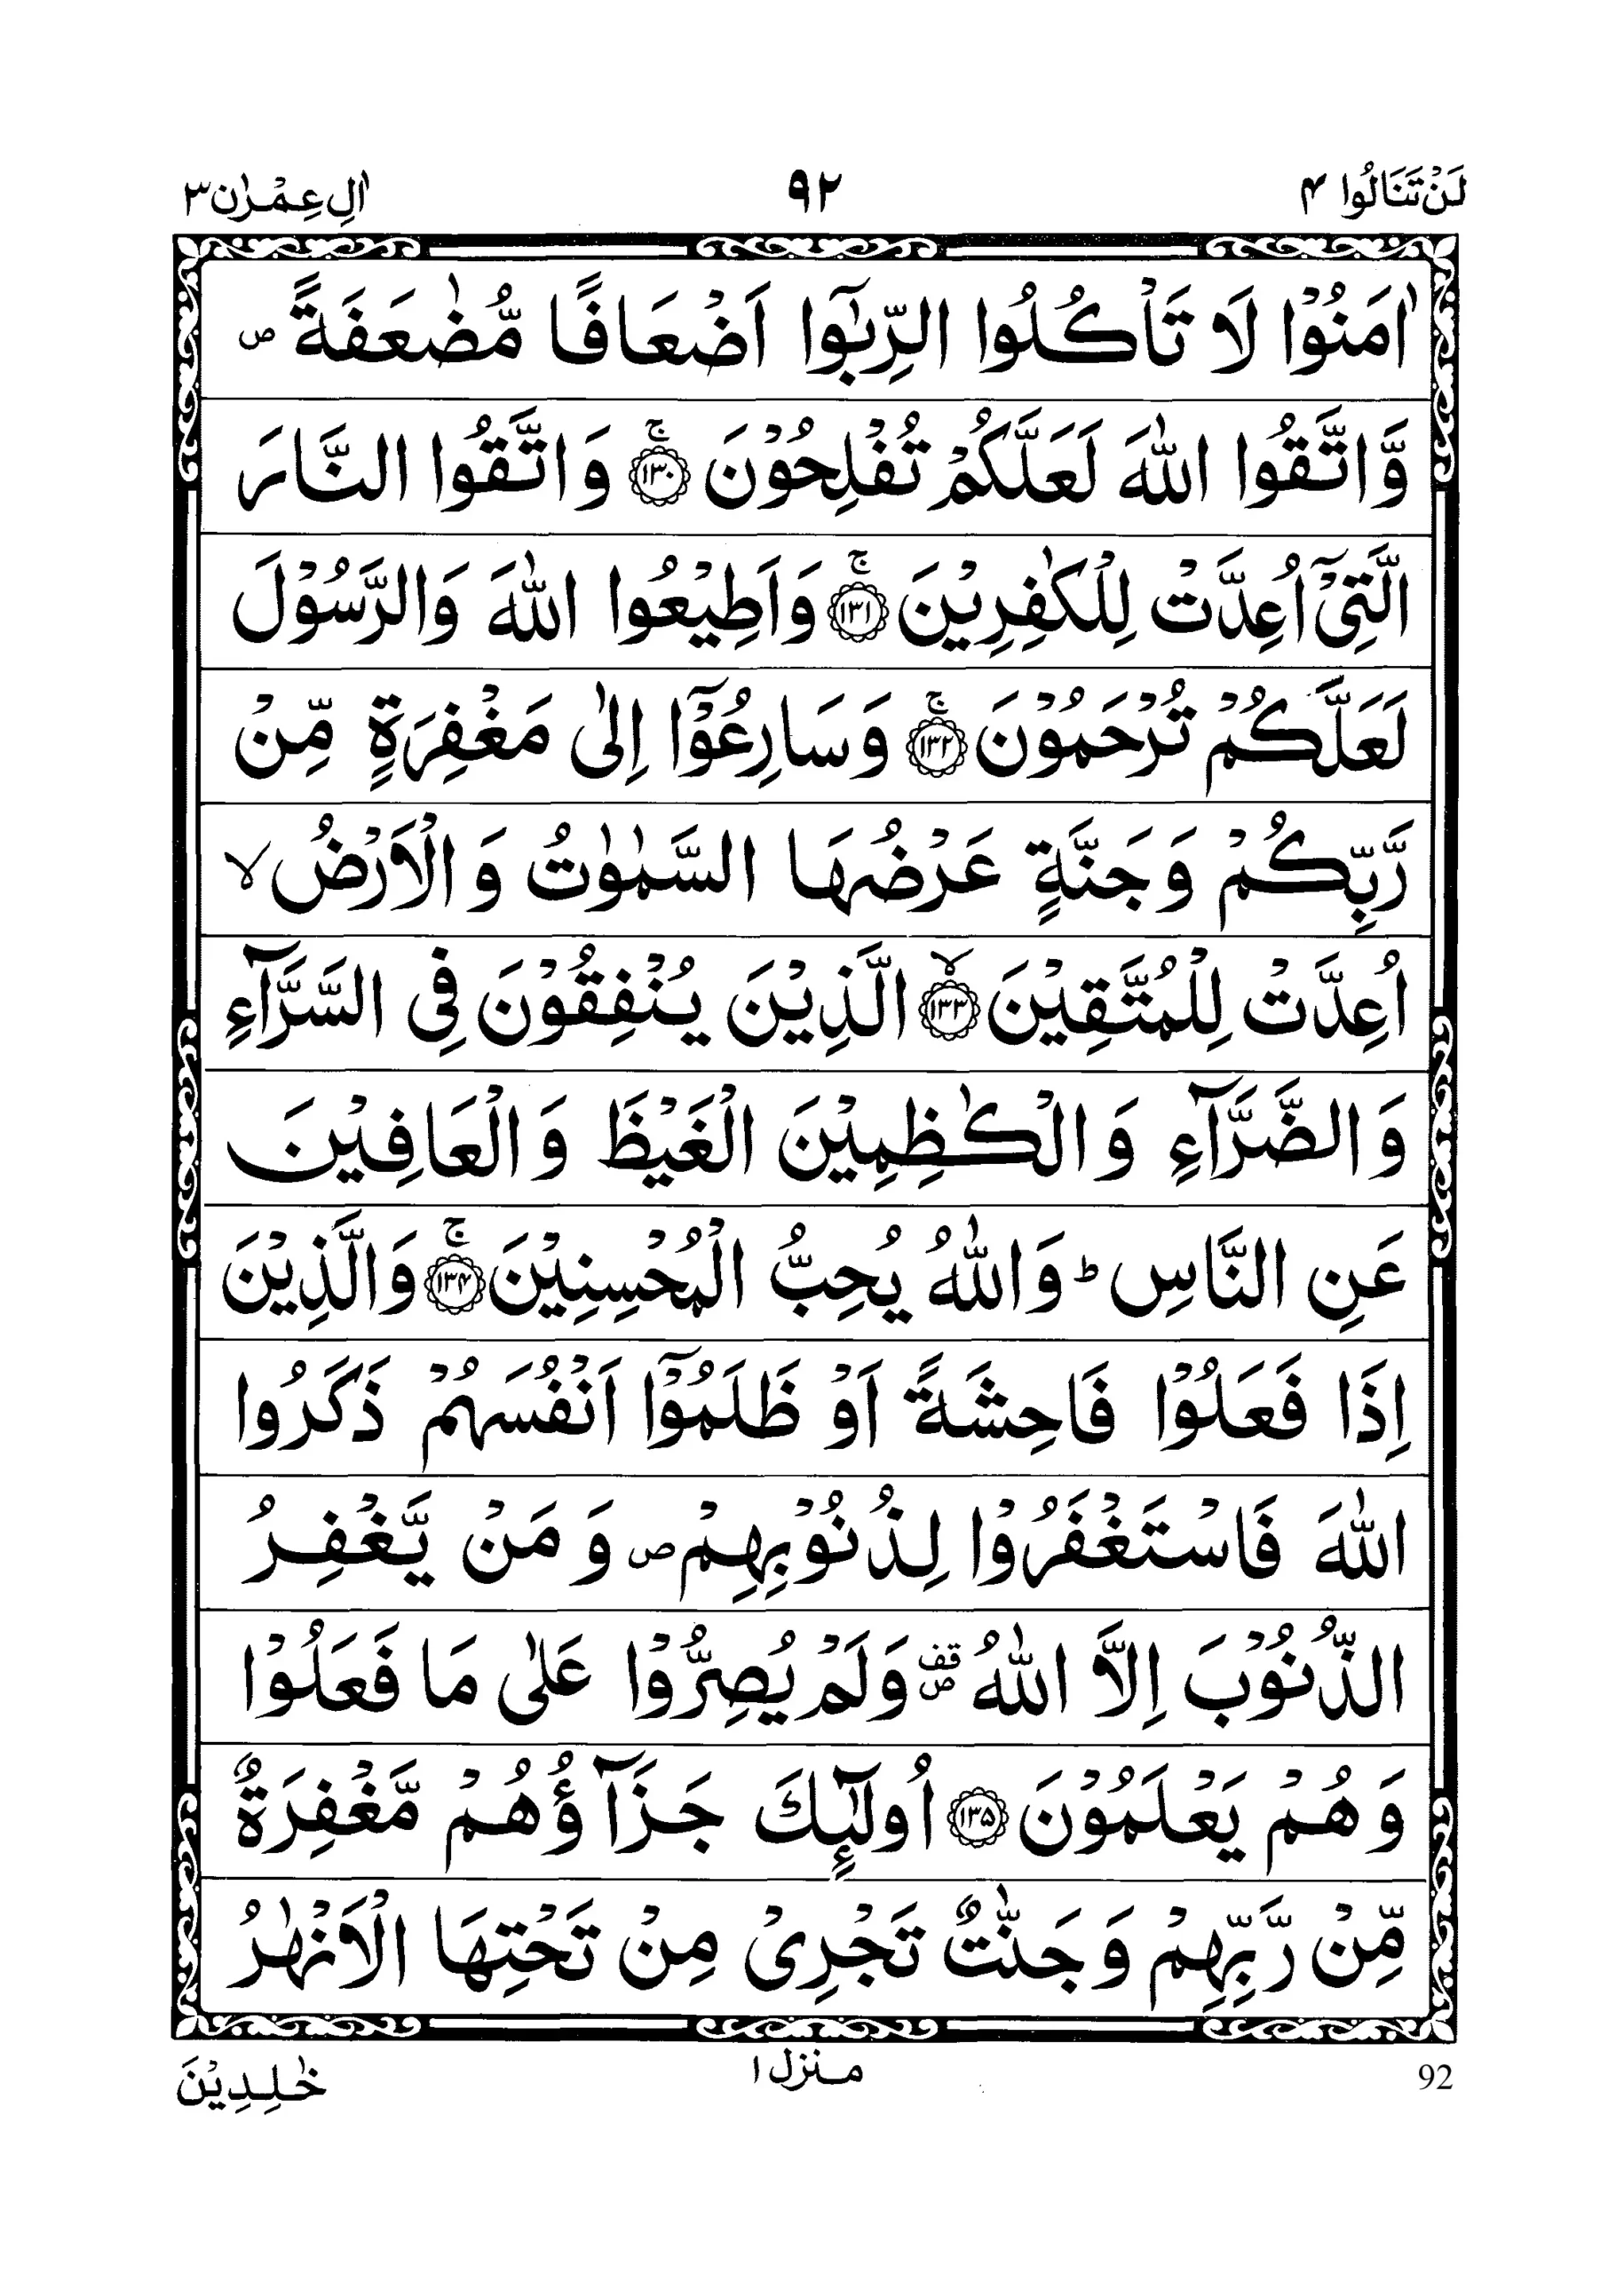 لَنْ تَنَالُوا ۴ ۹۲ اٰلِ عِمْرٰن ۳
اٰمَنُوْا لَا تَاْكُلُوا الرِّبٰۤوا اَضْعَافًا مُّضٰعَفَةً ۪
وَّاتَّقُوا اللّٰهَ لَعَلَّكُمْ تُفْلِحُوْنَ ۚ﴿۱۳۰﴾ وَاتَّقُوا النَّارَ
الَّتِیْۤ اُعِدَّتْ لِلْكٰفِرِیْنَ ۚ﴿۱۳۱﴾ وَاَطِیْعُوا اللّٰهَ وَالرَّسُوْلَ
لَعَلَّكُمْ تُرْحَمُوْنَ ۚ﴿۱۳۲﴾ وَسَارِعُوْۤا اِلٰی مَغْفِرَةٍ مِّنْ
رَّبِّكُمْ وَجَنَّةٍ عَرْضُهَا السَّمٰوٰتُ وَالْاَرْضُ ۙ
اُعِدَّتْ لِلْمُتَّقِیْنَ ۙ﴿۱۳۳﴾ الَّذِیْنَ یُنْفِقُوْنَ فِی السَّرَّآءِ
وَالضَّرَّآءِ وَالْكٰظِمِیْنَ الْغَیْظَ وَالْعَافِیْنَ
عَنِ النَّاسِ ؕ وَاللّٰهُ یُحِبُّ الْمُحْسِنِیْنَ ۚ﴿۱۳۴﴾ وَالَّذِیْنَ
اِذَا فَعَلُوْا فَاحِشَةً اَوْ ظَلَمُوْۤا اَنْفُسَهُمْ ذَكَرُوا
اللّٰهَ فَاسْتَغْفَرُوْا لِذُنُوْبِهِمْ ۪ وَمَنْ یَّغْفِرُ
الذُّنُوْبَ اِلَّا اللّٰهُ ۪۫ وَلَمْ یُصِرُّوْا عَلٰی مَا فَعَلُوْا
وَهُمْ یَعْلَمُوْنَ ﴿۱۳۵﴾ اُولٰٓئِكَ جَزَآؤُهُمْ مَّغْفِرَةٌ
مِّنْ رَّبِّهِمْ وَجَنّٰتٌ تَجْرِیْ مِنْ تَحْتِهَا الْاَنْهٰرُ
92 منزل ۱ خٰلِدِیْنَ